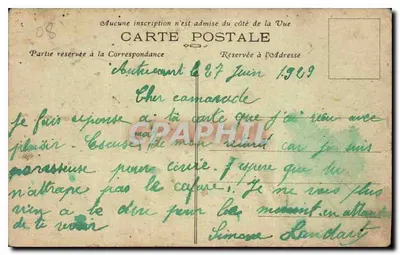 08
Aucune inscription n'est admise du côté de la Vue
CARTE POSTALE
Partie réservée à la Correspondance
Réservée à l'Adresse
le 27 Juin 1929
Cher camarade
Je fais reponse a ta carte que j'ai reçu avec
plaisir. Escuse moi de mon retard car je suis
paresseuse pour écrire. J'espere que tu
n'attrape pas le cafard. Je ne vois plus
rien a te dire pour le moment en attendant
de te revoir
Simone